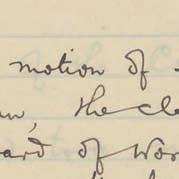 motion of
the cle
ard of Wor